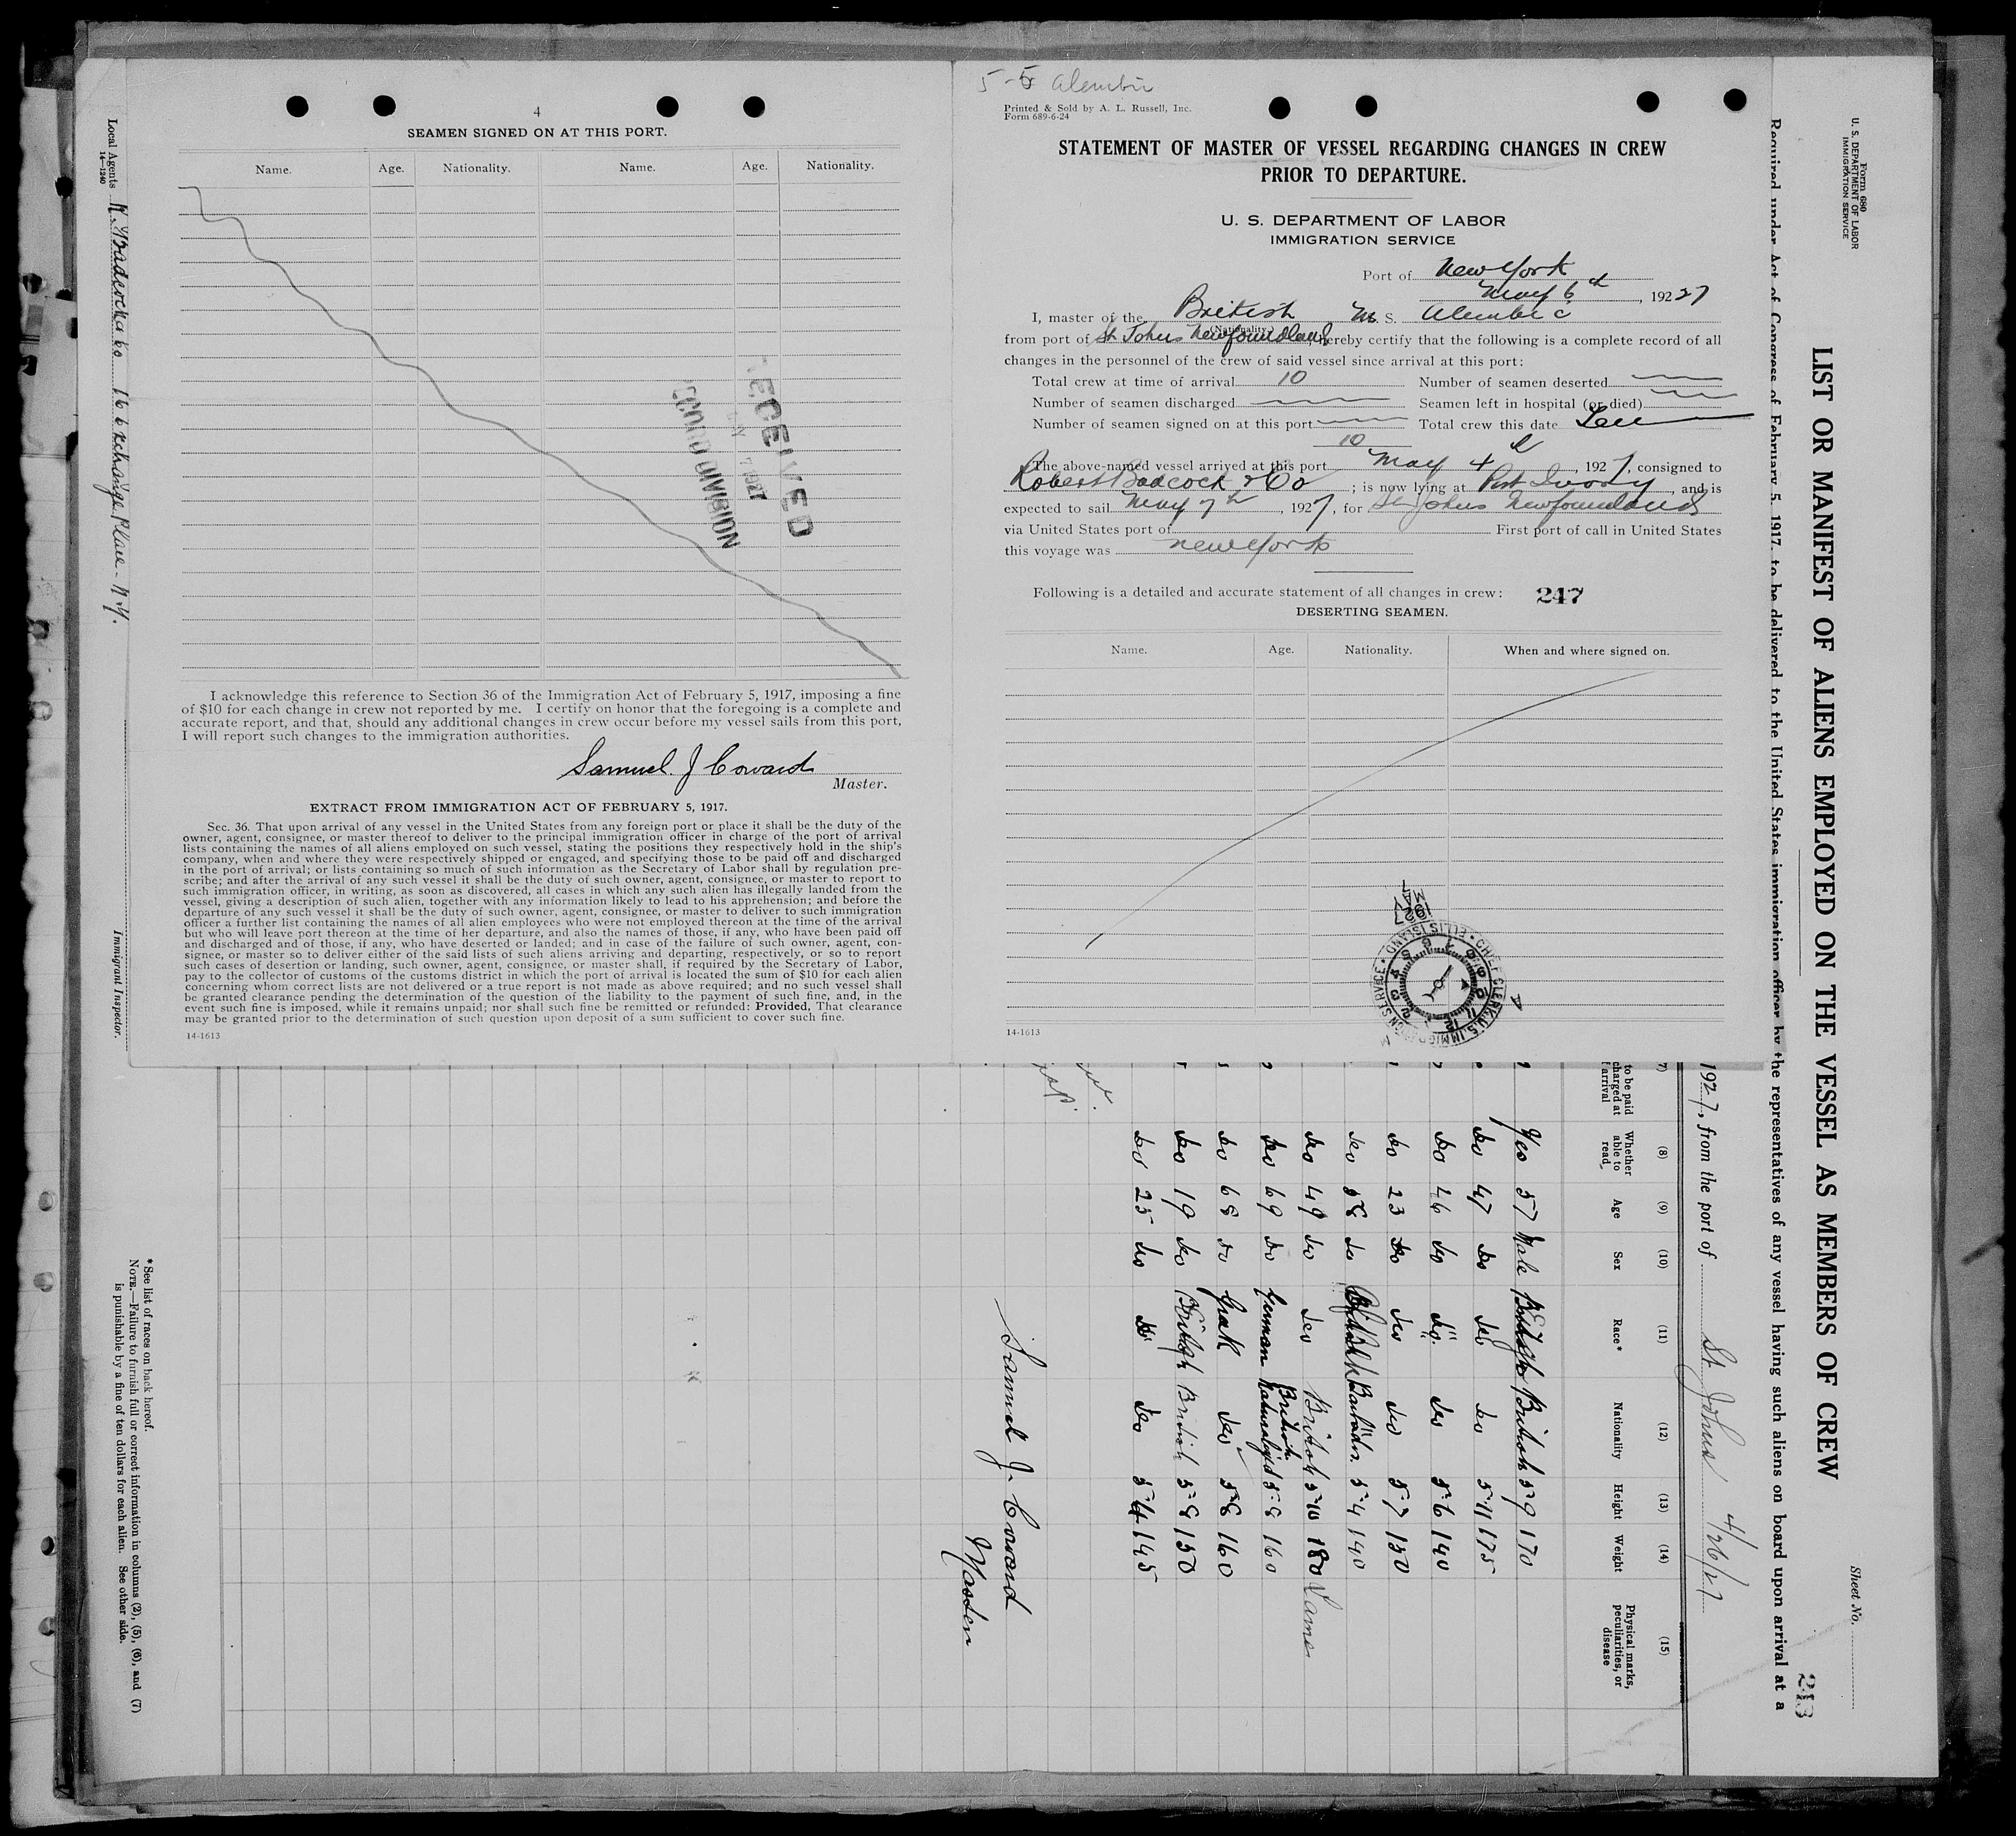 4
SEAMEN SIGNED ON AT THIS PORT.
Name. Age. Nationality. Name. Age. Nationality.
RECEIVED
MAY 7 1927
RECORD DIVISION
I acknowledge this reference to Section 36 of the Immigration Act of February 5, 1917, imposing a fine
of $10 for each change in crew not reported by me. I certify on honor that the foregoing is a complete and
accurate report, and that, should any additional changes in crew occur before my vessel sails from this port,
I will report such changes to the immigration authorities.
Samuel J Coward
Master.
EXTRACT FROM IMMIGRATION ACT OF FEBRUARY 5, 1917.
Sec. 36. That upon arrival of any vessel in the United States from any foreign port or place it shall be the duty of the
owner, agent, consignee, or master thereof to deliver to the principal immigration officer in charge of the port of arrival
lists containing the names of all aliens employed on such vessel, stating the positions they respectively hold in the ship's
company, when and where they were respectively shipped or engaged, and specifying those to be paid off and discharged
in the port of arrival; or lists containing so much of such information as the Secretary of Labor shall by regulation pre-
scribe; and after the arrival of any such vessel it shall be the duty of such owner, agent, consignee, or master to report to
such immigration officer, in writing, as soon as discovered, all cases in which any such alien has illegally landed from the
vessel, giving a description of such alien, together with any information likely to lead to his apprehension; and before the
departure of any such vessel it shall be the duty of such owner, agent, consignee, or master to deliver to such immigration
officer a further list containing the names of all alien employees who were not employed thereon at the time of the arrival
but who will leave port thereon at the time of her departure, and also the names of those, if any, who have been paid off
and discharged and of those, if any, who have deserted or landed; and in case of the failure of such owner, agent, con-
signee, or master so to deliver either of the said lists of such aliens arriving and departing, respectively, or so to report
such cases of desertion or landing, such owner, agent, consignee, or master shall, if required by the Secretary of Labor,
pay to the collector of customs of the customs district in which the port of arrival is located the sum of $10 for each alien
concerning whom correct lists are not delivered or a true report is not made as above required; and no such vessel shall
be granted clearance pending the determination of the question of the liability to the payment of such fine, and, in the
event such fine is imposed, while it remains unpaid; nor shall such fine be remitted or refunded: Provided, That clearance
may be granted prior to the determination of such question upon deposit of a sum sufficient to cover such fine.
14-1613
5-5 Alembic
Printed & Sold by A. L. Russell, Inc.
Form 689-6-24
STATEMENT OF MASTER OF VESSEL REGARDING CHANGES IN CREW
PRIOR TO DEPARTURE.
U. S. DEPARTMENT OF LABOR
IMMIGRATION SERVICE
Port of New York
May 6th, 192 27
I, master of the British M. S. Alembic
(Nationality.)
from port of St Johns Newfoundland, hereby certify that the following is a complete record of all
changes in the personnel of the crew of said vessel since arrival at this port:
Total crew at time of arrival 10 Number of seamen deserted
Number of seamen discharged Seamen left in hospital (or died)
Number of seamen signed on at this port Total crew this date Ten
10
The above-named vessel arrived at this port May 4, 1927, consigned to
Robert Badcock & Co; is now lying at Port Ivory, and is
expected to sail May 7th, 1927, for St Johns Newfoundland
via United States port of First port of call in United States
this voyage was New York
Following is a detailed and accurate statement of all changes in crew: 247
DESERTING SEAMEN.
Name. Age. Nationality. When and where signed on.
CHIEF CLERK U.S. IMMIGRATION SERVICE ELLIS ISLAND
1927
14-1613
Form 680
U. S. DEPARTMENT OF LABOR
IMMIGRATION SERVICE
Sheet No.
243
LIST OR MANIFEST OF ALIENS EMPLOYED ON THE VESSEL AS MEMBERS OF CREW
Required under Act of Congress of February 5, 1917, to be delivered to the United States immigration officer by the representatives of any vessel having such aliens on board upon arrival at a
1927, from the port of St. Johns 4/26/27
(7) (8) (9) (10) (11) (12) (13) (14) (15)
to be paid
charged at
arrival
Whether able to read
Age
Sex
Race*
Nationality
Height
Weight
Physical marks, peculiarities, or disease
Yes 57 Male British 5 9 170
do 47 do do do 5 11 175
do 46 do do do 5 6 140
do 23 do do do 5 7 150
do 58 do Barbados 5 4 140
do 49 do do British 5 10 180 Lame
do 69 do German British naturalized 5 8 160
do 68 do Greek do 5 8 160
do 19 do British British 5 8 150
do 25 do do do 5 4 145
Samuel J. Coward
Master
Local Agents
14-1240
16 Exchange Place - N.Y.
Immigrant Inspector.
* See list of races on back hereof.
NOTE.—Failure to furnish full or correct information in columns (2), (5), (6), and (7)
is punishable by a fine of ten dollars for each alien. See other side.